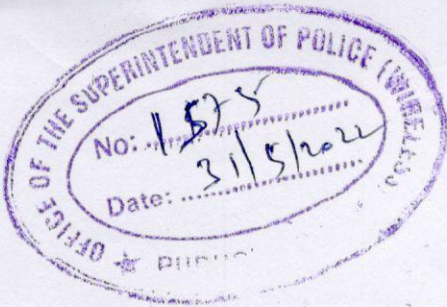 OFFICE OF THE SUPERINTENDENT OF POLICE (WIRELESS)
No: 1575
Date: 31/5/2022